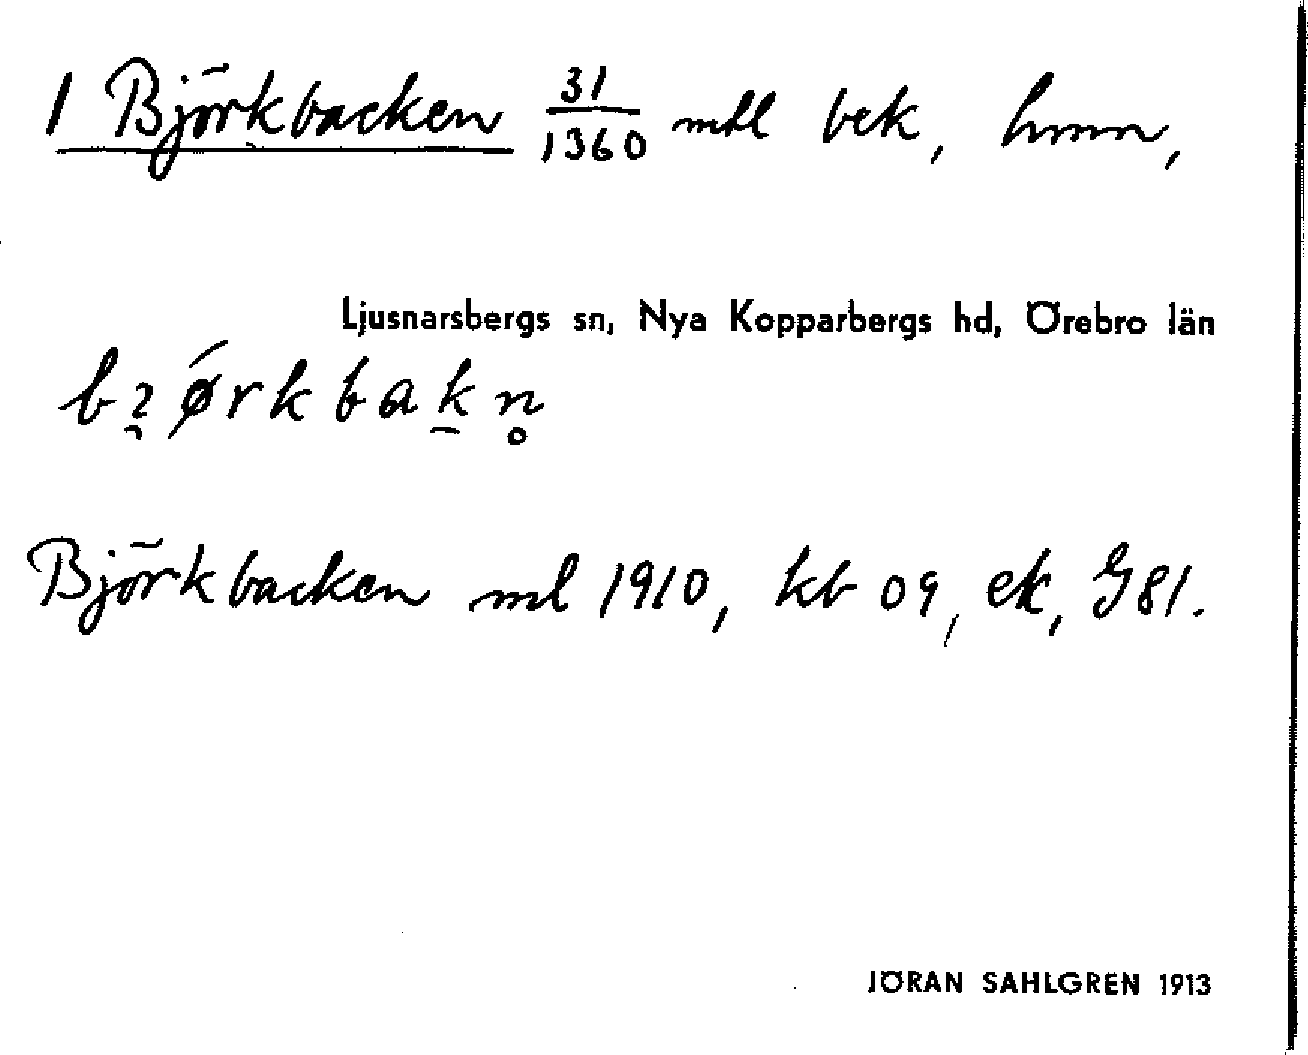 1 Björkbacken 31/1360 mtl bek, hmn,
Ljusnarsbergs sn, Nya Kopparbergs hd, Örebro län
bi̯ǿrkbak̠n̥
Björkbacken ml 1910, kb 09, ek, G81.
JÖRAN SAHLGREN 1913